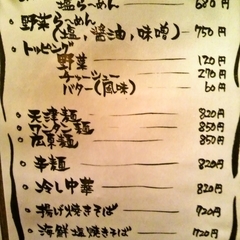 塩らーめん 680円
野菜らーめん
(塩, 醤油, 味噌) 750円
トッピング
野菜 120円
チャーシュー 270円
バター(風味) 60円
天津麺 820円
ワンタン麺 850円
広東麺 850円
辛麺 820円
冷し中華 820円
揚げ焼きそば 720円
海鮮塩焼きそば 720円